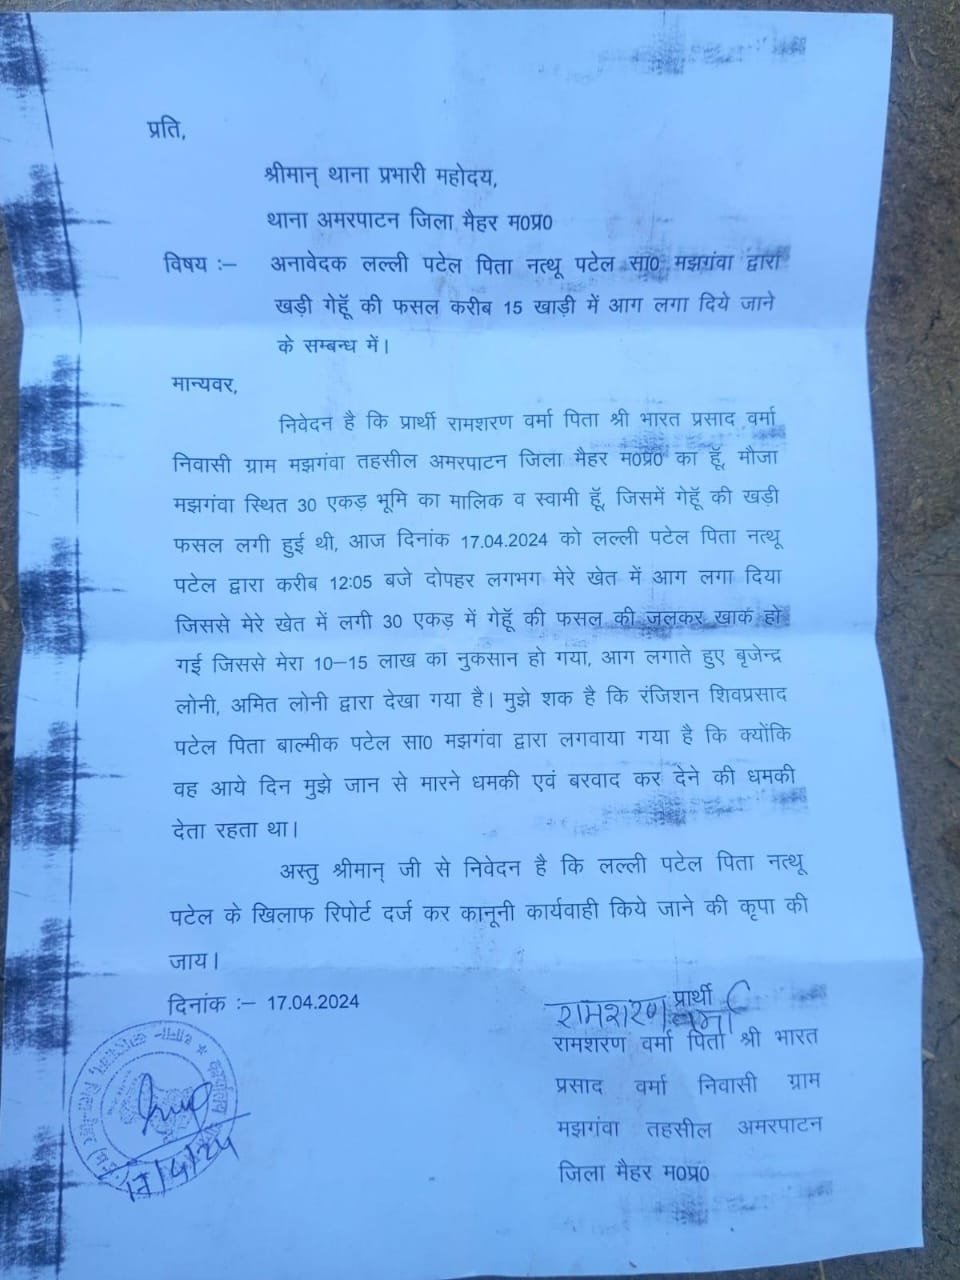 प्रति,
श्रीमान् थाना प्रभारी महोदय,
थाना अमरपाटन जिला मैहर म0प्र0
विषय :– अनावेदक लल्ली पटेल पिता नत्थू पटेल सा0 मझगंवा द्वारा
खड़ी गेहूॅ की फसल करीब 15 खाड़ी में आग लगा दिये जाने
के सम्बन्ध में।
मान्यवर,
निवेदन है कि प्रार्थी रामशरण वर्मा पिता श्री भारत प्रसाद वर्मा
निवासी ग्राम मझगंवा तहसील अमरपाटन जिला मैहर म0प्र0 का हूॅ, मौजा
मझगंवा स्थित 30 एकड़ भूमि का मालिक व स्वामी हूॅ, जिसमें गेहूॅ की खड़ी
फसल लगी हुई थी, आज दिनांक 17.04.2024 को लल्ली पटेल पिता नत्थू
पटेल द्वारा करीब 12:05 बजे दोपहर लगभग मेरे खेत में आग लगा दिया
जिससे मेरे खेत में लगी 30 एकड़ में गेहूॅ की फसल की जलकर खाक हो
गई जिससे मेरा 10–15 लाख का नुकसान हो गया, आग लगाते हुए बृजेन्द्र
लोनी, अमित लोनी द्वारा देखा गया है। मुझे शक है कि रंजिशन शिवप्रसाद
पटेल पिता बाल्मीक पटेल सा0 मझगंवा द्वारा लगवाया गया है कि क्योंकि
वह आये दिन मुझे जान से मारने धमकी एवं बरवाद कर देने की धमकी
देता रहता था।
अस्तु श्रीमान् जी से निवेदन है कि लल्ली पटेल पिता नत्थू
पटेल के खिलाफ रिपोर्ट दर्ज कर कानूनी कार्यवाही किये जाने की कृपा की
जाय।
दिनांक :– 17.04.2024
प्रार्थी
रामशरण वर्मा
रामशरण वर्मा पिता श्री भारत
प्रसाद वर्मा निवासी ग्राम
मझगंवा तहसील अमरपाटन
जिला मैहर म0प्र0
17/4/24